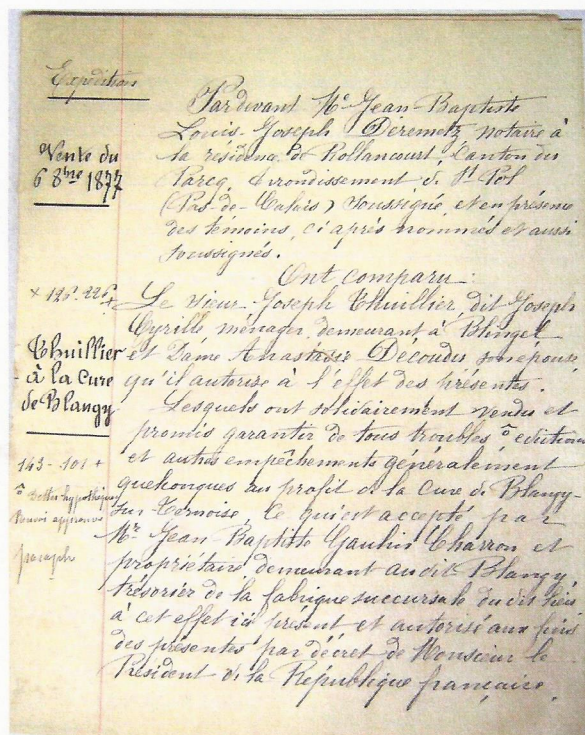 Expéditions
Vente du
6 8bre 1877
× 125. 225. +
Thuillier
à la Cure
de Blangy
143 - 101 +
paraph
Pardevant Me Jean Baptiste
Louis-Joseph Déremetz notaire à
la résidence de Rollancourt, Canton du
Parcq, Arrondissement de St Pol
(Pas-de-Calais) soussigné, et en présence
des témoins, ci après nommés et aussi
soussignés.
Ont comparu:
Le sieur Joseph Thuillier, dit Joseph
Cyrille ménager, demeurant à Blingel
et Dame Anastasie Découdu son épouse
qu'il autorise à l'effet des présentes.
Lesquels ont solidairement vendu et
promis garantir de tous troubles
et autres empêchements généralement
quelconques au profit de la Cure de Blangy-
sur Ternoise ce qui est accepté par
Mr Jean Baptiste Gaulin Charron et
propriétaire demeurant audit Blangy,
trésorier de la fabrique succursale dudit lieu
à cet effet ici présent et autorisé aux fins
des présentes par décret de Monsieur le
Président de la République française